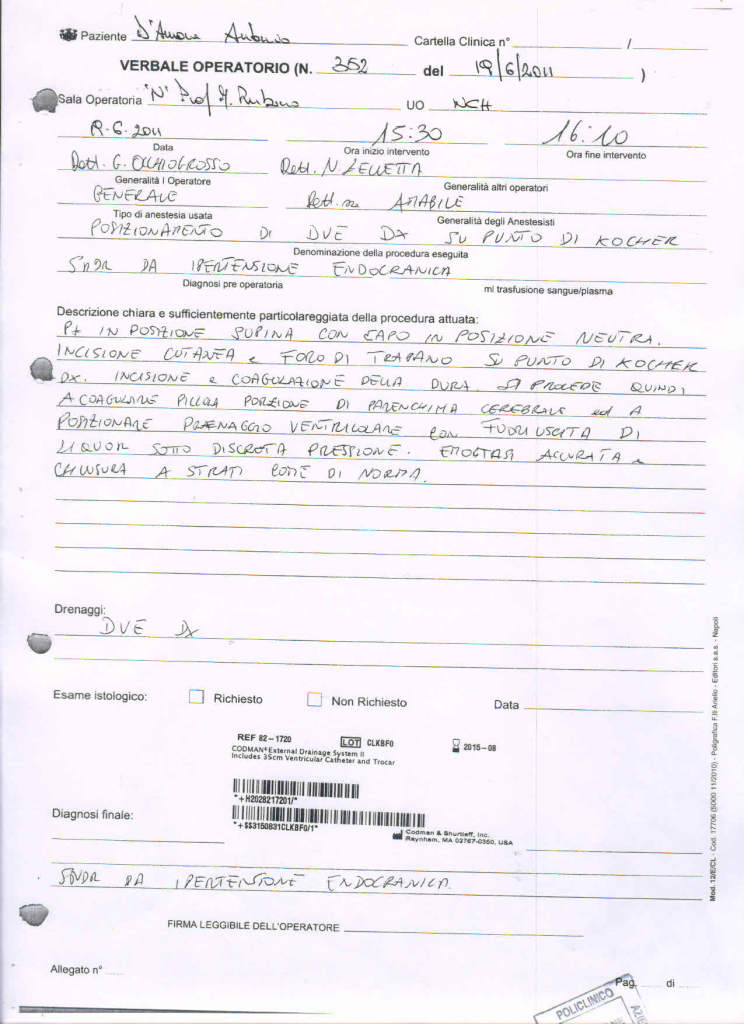 Paziente D'Amore Antonio Cartella Clinica n° /
VERBALE OPERATORIO (N. 352 del 19/6/2011 )
Sala Operatoria "N" Prof UO NCH
19.6.2011 15:30 16:10
Data Ora inizio intervento Ora fine intervento
Dott. G. OCCHIOGROSSO Dott. N ZELLETTA
Generalità I Operatore Generalità altri operatori
GENERALE Dott.ssa AMABILE
Tipo di anestesia usata Generalità degli Anestesisti
POSIZIONAMENTO DI DVE DX SU PUNTO DI KOCHER
Denominazione della procedura eseguita
SNDR DA IPERTENSIONE ENDOCRANICA
Diagnosi pre operatoria ml trasfusione sangue/plasma
Descrizione chiara e sufficientemente particolareggiata della procedura attuata:
Pt IN POSIZIONE SUPINA CON CAPO IN POSIZIONE NEUTRA.
INCISIONE CUTANEA e FORO DI TRAPANO SU PUNTO DI KOCHER
DX. INCISIONE e COAGULAZIONE DELLA DURA. SI PROCEDE QUINDI
A COAGULARE PICCOLA PORZIONE DI PARENCHIMA CEREBRALE ed A
POSIZIONARE DRENAGGIO VENTRICOLARE CON FUORIUSCITA DI
LIQUOR SOTTO DISCRETA PRESSIONE. EMOSTASI ACCURATA e
CHIUSURA A STRATI COME DI NORMA.
Drenaggi:
DVE DX
Esame istologico: Richiesto Non Richiesto Data
REF 82-1720 LOT CLKBF0 2015-08
CODMAN® External Drainage System II
Includes 35cm Ventricular Catheter and Trocar
*+H2028217201/*
Diagnosi finale:
*+$$3150831CLKBF0/1*
Codman & Shurtleff, Inc.
Raynham, MA 02767-0350, USA
SNDR DA IPERTENSIONE ENDOCRANICA.
FIRMA LEGGIBILE DELL'OPERATORE
Allegato n°
Pag. di
POLICLINICO
Mod. 12/E/CL - Cod. 17706 (5000 11/2010) - Poligrafica F.lli Ariello - Editori s.a.s. - Napoli